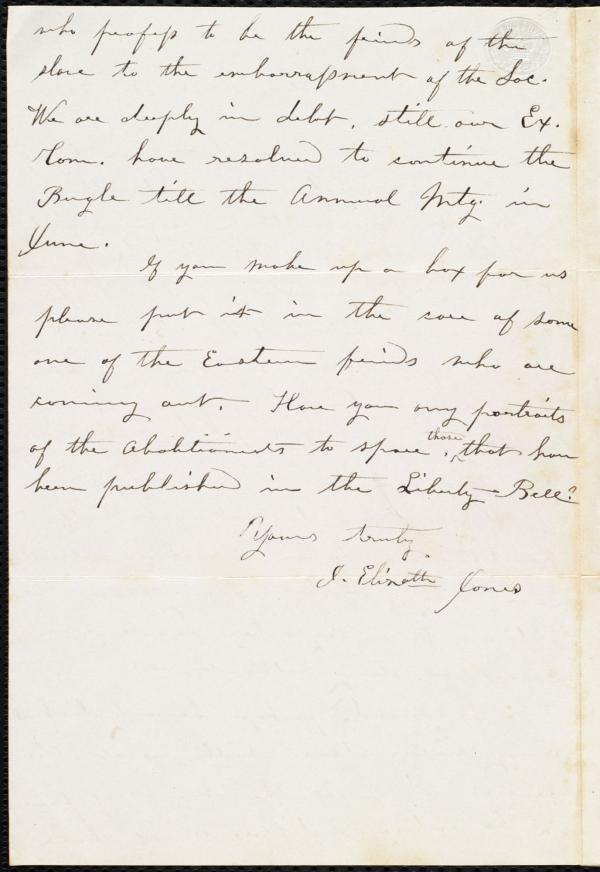 who profess to be the friends of the
slave to the embarrassment of the Soc.
We are deeply in debt, still our Ex.
Com. have resolved to continue the
Bugle till the Annual Mtg. in
June.
If you make up a box for us
please put it in the care of some
one of the Eastern friends who are
coming out. Have you any portraits
of the Abolitionists to spare, those that have
been published in the Liberty Bell?
Yours truly,
J. Elizabeth Jones